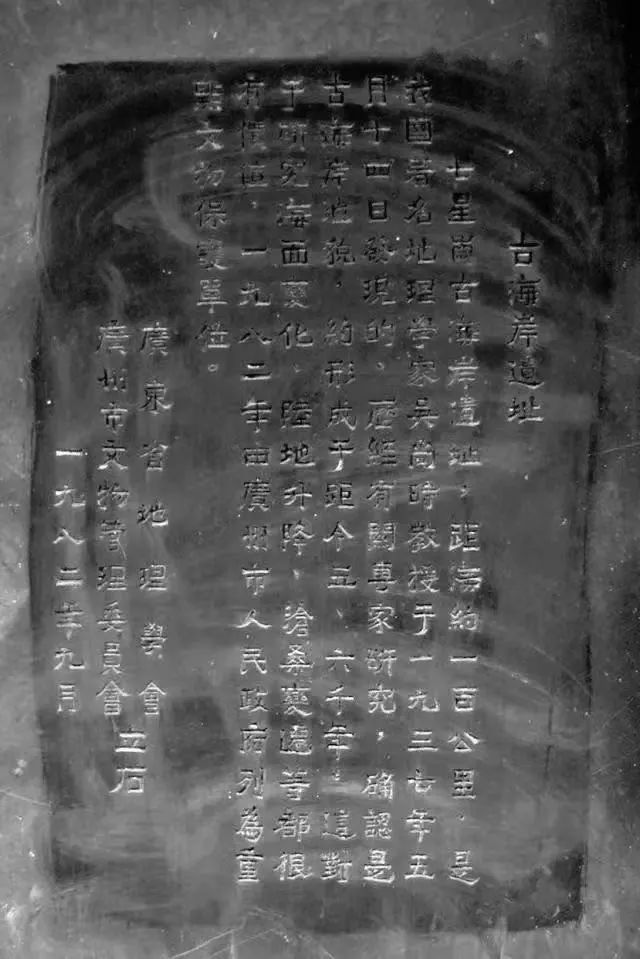 古海岸遺址
七星崗古海岸遺址，距海約一百公里，是
我國著名地理學家吳尚時教授于一九三七年五
月十四日發現的。歷經有關專家研究，確認是
古海岸地貌，約形成于距今五、六千年。這對
于研究海面變化、陸地升降、滄桑變遷等都很
有價值，一九八二年由廣州市人民政府列為重
點文物保護單位。
廣東省地理學會
廣州市文物管理委員會
立石
一九八二年九月